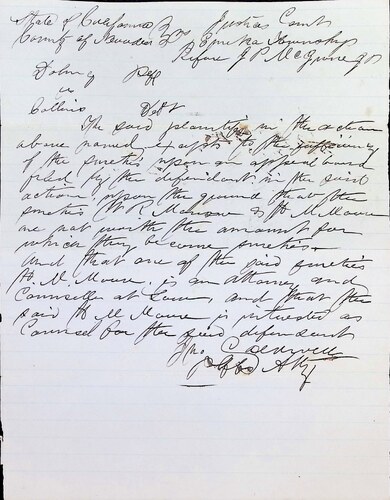 State of California } Justice Court
County of Nevada } ss Eureka Township
Before J P McGuire JP
Dolny Plff
vs
Collins Deft
The said plaintiff in the action
above named excepts to the sufficiency
of the sureties upon an appeal bond
filed by the defendant in the said
action, upon the ground that the
sureties W R Morrow & H M Moore
are not worth the amount for
which they become sureties
and that one of the said sureties
H. M. Moore, is an attorney and
Counsellor at Law, and that the
said H M Moore is interested as
Counsel for the said defendant
Jno Caldwell
Plffs Atty